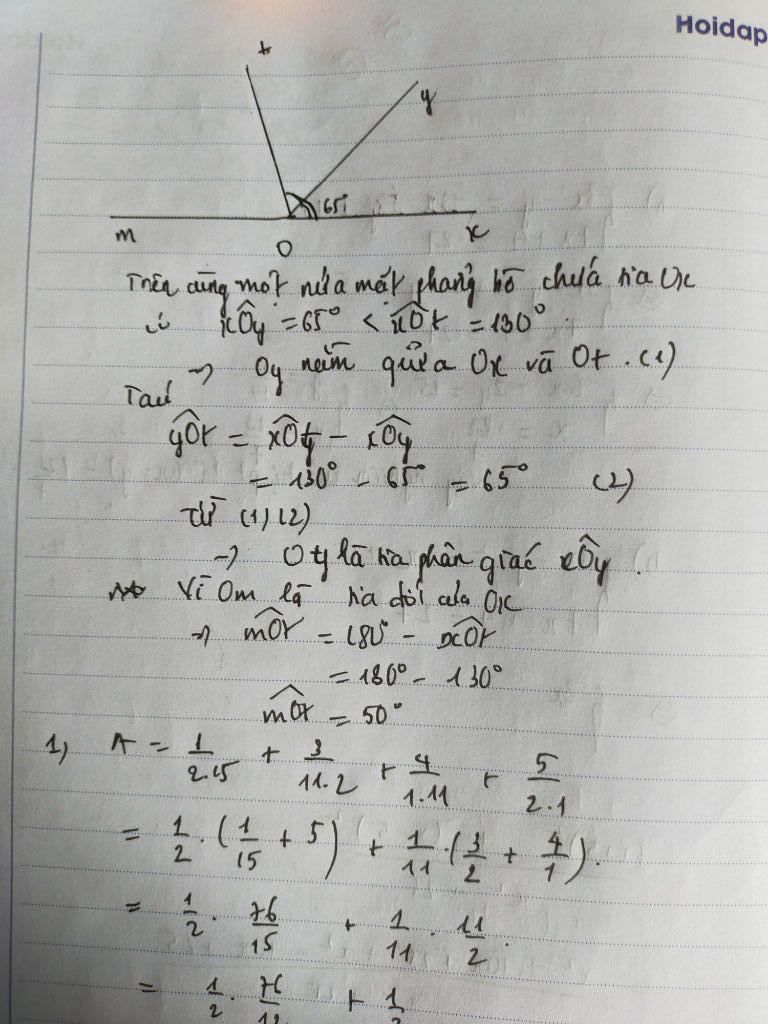 Hoidap
t
y
65°
m
O
x
Trên cùng một nửa mặt phẳng bờ chứa tia Ox
có xOy = 65° < xOt = 130°
→ Oy nằm giữa Ox và Ot. (1)
Ta có
yOt = xOt - xOy
= 130° - 65° = 65° (2)
Từ (1) (2)
→ Oy là tia phân giác xOy.
Vì Om là tia đối của Ox
→ mOt = 180° - xOt
= 180° - 130°
mOt = 50°
1, A = 1/2.15 + 3/11.2 + 4/1.11 + 5/2.1
= 1/2 . (1/15 + 5) + 1/11 . (3/2 + 4/1).
= 1/2 . 76/15 + 1/11 . 11/2.
= 1/2 . 76 + 1